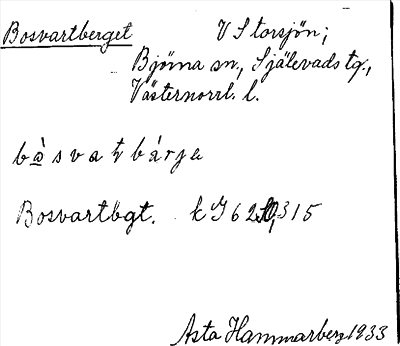 Bosvartberget V Storsjön;
Björna sn., Själevads tg.,
Västernorrl. l.
bå̀svatbárja
Bosvartbgt. kJ 6 315
Asta Hammarberg 1933